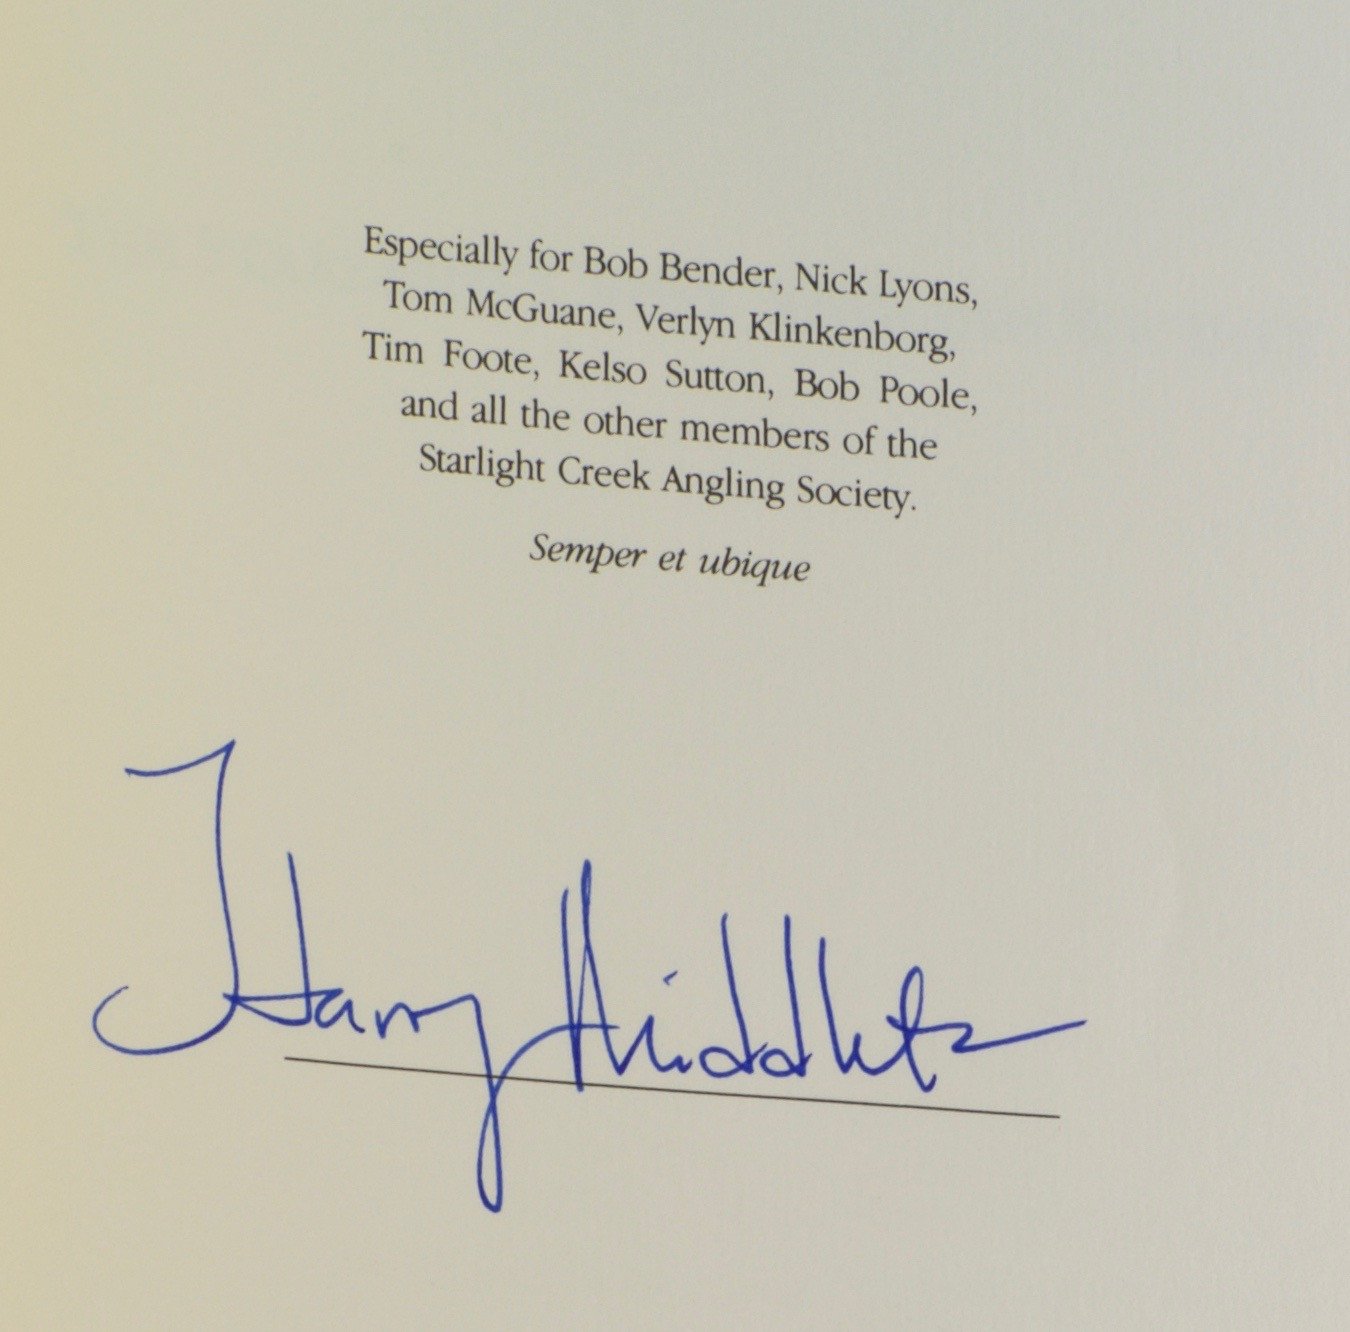 Especially for Bob Bender, Nick Lyons,
Tom McGuane, Verlyn Klinkenborg,
Tim Foote, Kelso Sutton, Bob Poole,
and all the other members of the
Starlight Creek Angling Society.
Semper et ubique
Harry Middleton